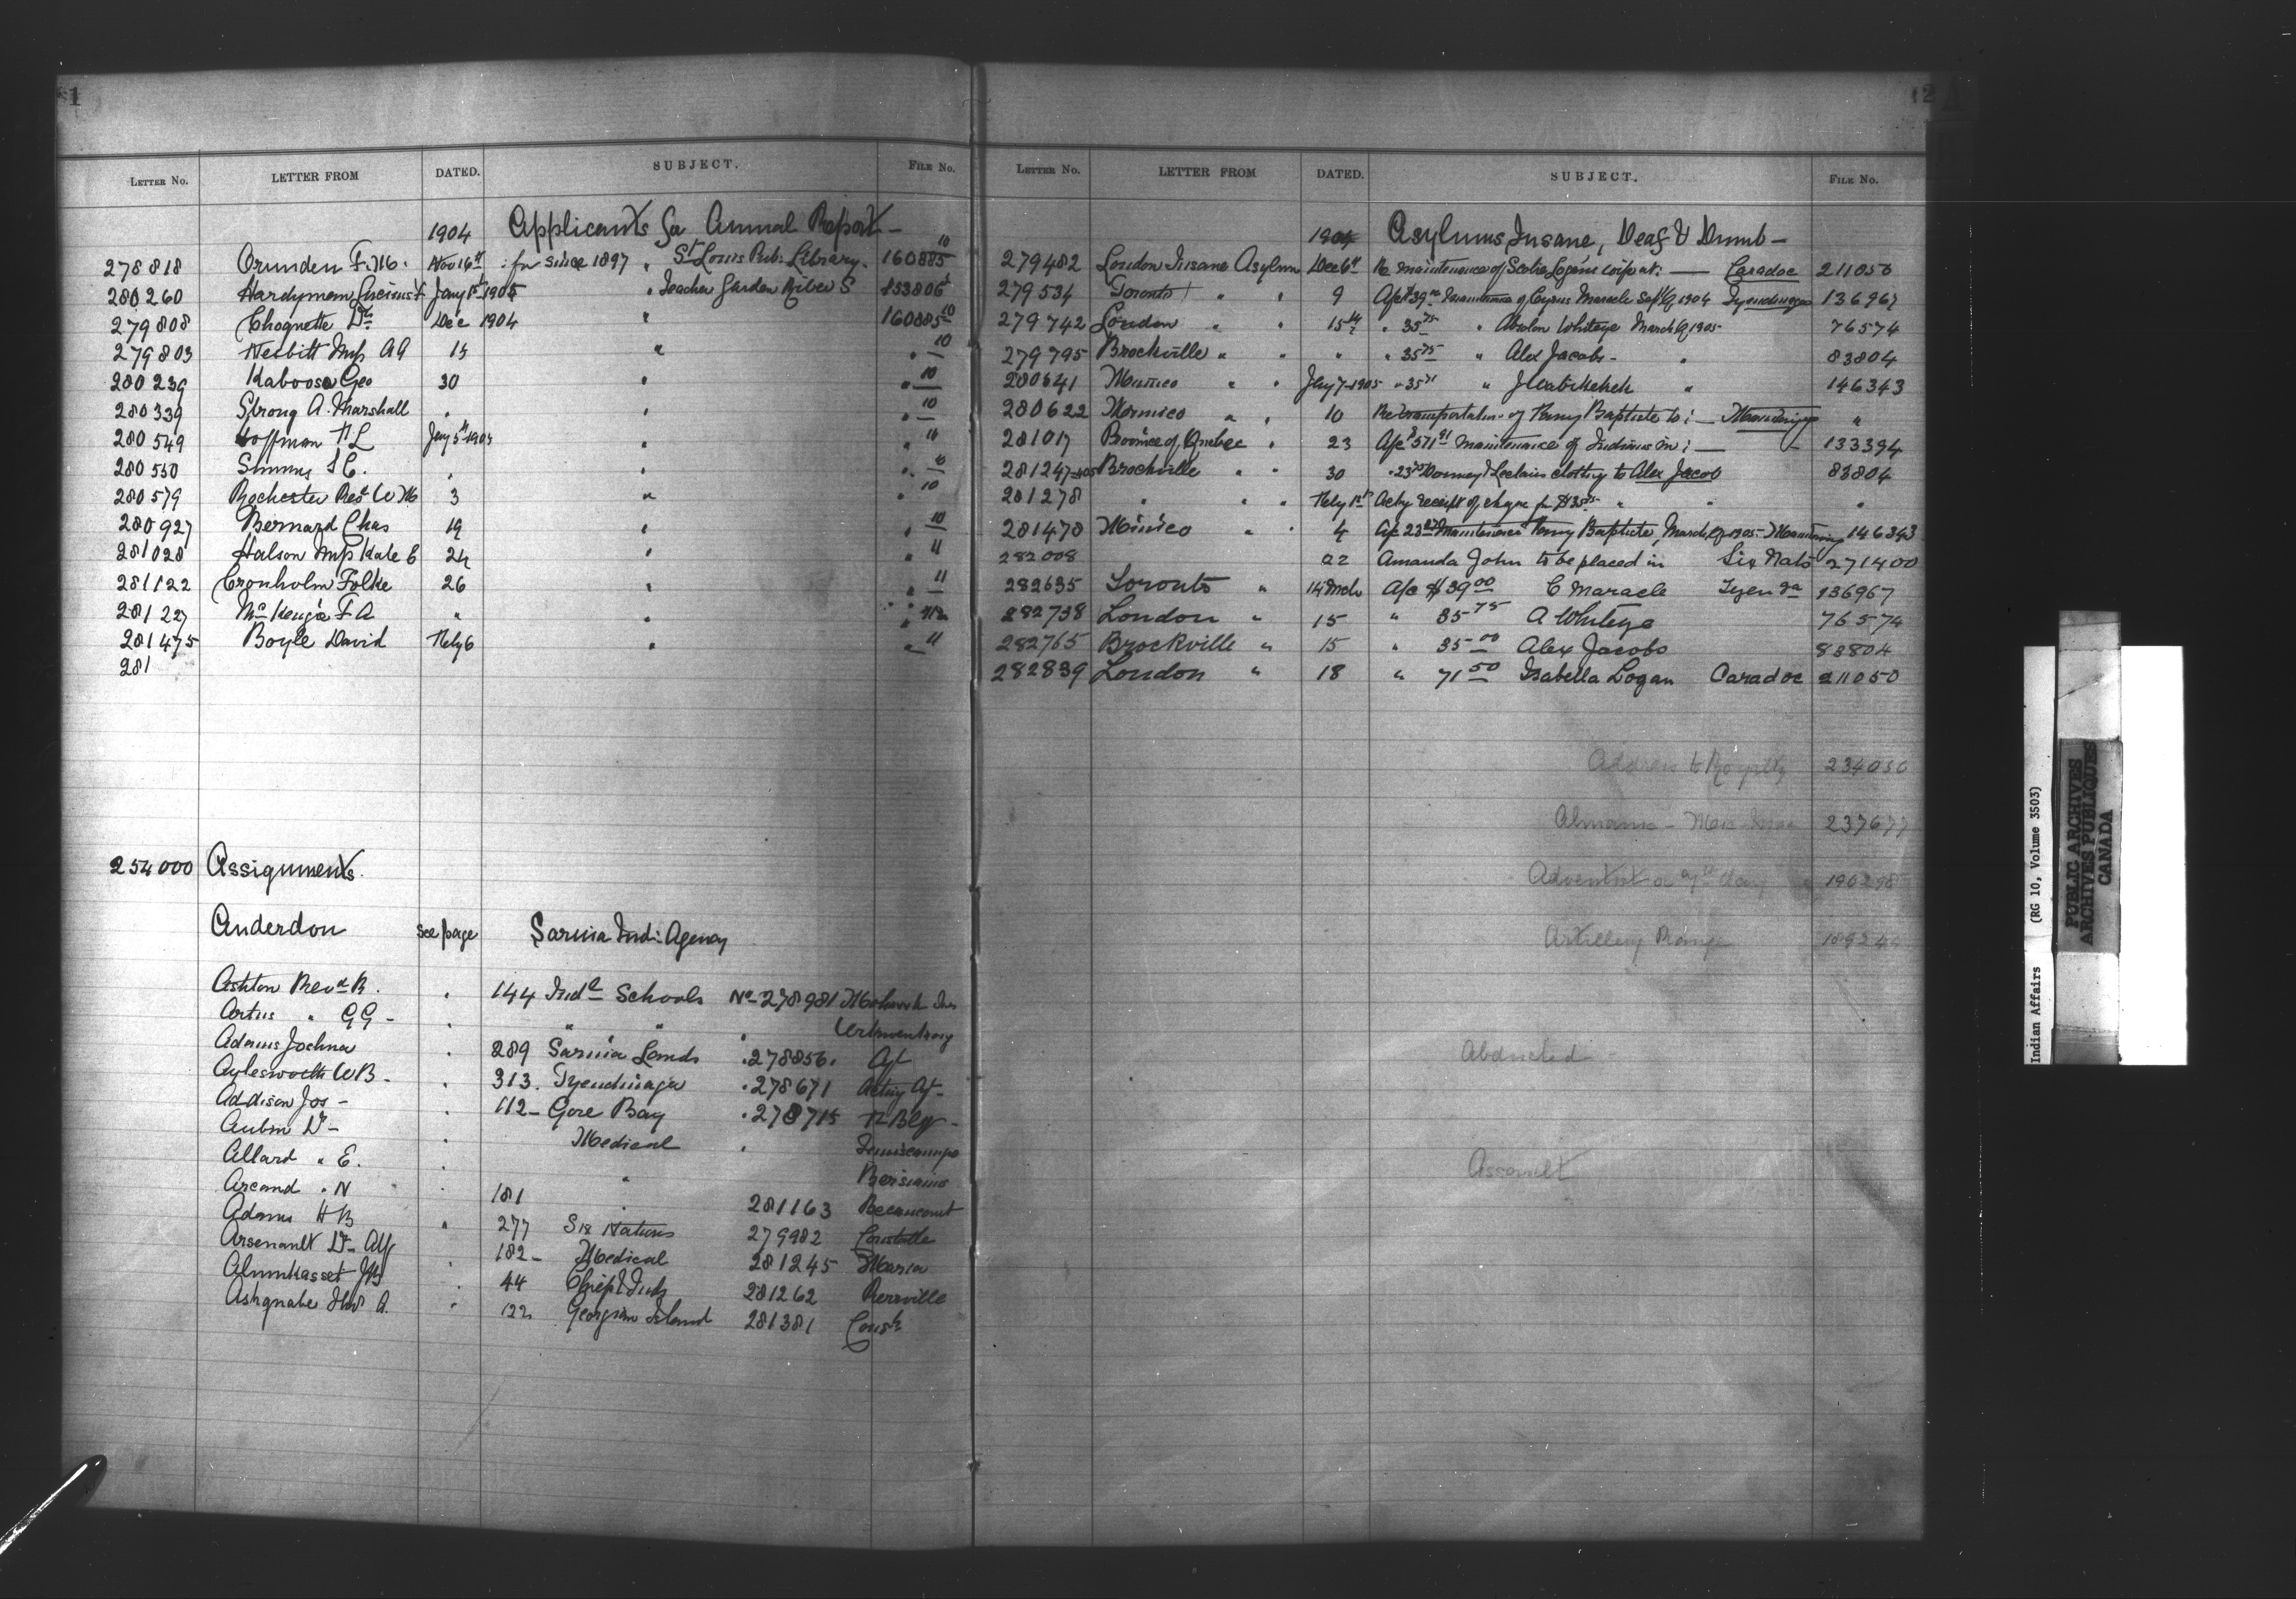 1
LETTER No. LETTER FROM DATED. SUBJECT. FILE No.
1904 Applicants for Annual Report -
278818 Crunden F. M. Nov 16th : for since 1897 " St Louis Pub: Library. 160885 10
280260 Hardyman Lucius F Jany 1st 1905 " Teacher Garden River S
279808 Choquette Dr Dec 1904 " 160885 10
279803 Nesbitt Mrs A A 15 " " 10
280239 Kaboosa Geo 30 " " 10
280339 Strong A. Marshall " " " 10
280549 Hoffman H L Jany 5th 1905 " " 10
280550 Simms S C. " " " 10
280579 Rochester Rev W M 3 " " 10
280927 Bernard Chas 19 " " 10
281028 Halson Mrs Kate E 24 " " 11
281122 Cronholm Folke 26 " " 11
281227 McKenzie F A " " "
281475 Boyle David Feby 6 " " 11
281
254000 Assignments.
Anderdon see page Sarnia Ind: Agency
Ashton Revd R. " 144 Indl Schools No 278981 Mohawk Ins
Artus " G G - " " " "
Adams Joshua " 289 Sarnia Lands " 278856. Agt
Aylesworth W B - " 313. Tyendinaga " 278671 Acting Agt -
Addison Jos - " 112 - Gore Bay " 278715 R Bldg -
Aubin Dr - " Medical "
Allard " E. " " Bersiamis
Arcand " N " 181 " 281163 Becancourt
Adams H B " 277 Six Nations 279982 Constable
Arsenault Dr Alf " 182 - Medical 281245 Maria
" 44 Chief & Inds 281262 Pierrville
" 122 Georgina Island 281381 Const
12
LETTER No. LETTER FROM DATED. SUBJECT. FILE No.
1904 Asylums, Insane, Deaf & Dumb -
279482 London Insane Asylum Dec 6th Re maintenance of Scotia Logan's wife at: - Caradoc 211050
279534 Toronto " " 9 A/c $39.00 maintenance of Cyrus Maracle Sept Q 1904 Tyendinaga 136967
279742 London " " 15th " 35 75 " Absolon Whiteye March Q 1905 76574
279795 Brockville " " " " 35 75 " Alex Jacobs - " 83804
280541 Mimico " " Jany 7-1905 " 35 " " 146343
280622 Mimico " " 10 Re transportation of Baptiste to: - "
281017 Province of Quebec " 23 A/c $571 91 maintenance of Indians in: - 133394
281247 Brockville " " 30 " clothing to Alex Jacob 83804
281278 " " " Feby 1st Ackg receipt of cheque for " " "
281470 Mimico " " 4 A/c maintenance Baptiste, March Q 1905 - 146343
282008 22 Amanda John to be placed in Six Nats 271400
282635 Toronto " 14 Mch A/c $39 00 C Maracle Tyenda 136967
282738 London " 15 " 35 75 A Whiteye 76574
282765 Brockville " 15 " 35 00 Alex Jacobs 83804
282839 London " 18 " 71 50 Isabella Logan Caradoc 211050
Address to Royalty 234056
237677
Adventist
Artillery Range
Abducted
Assault
Indian Affairs (RG 10, Volume 3503)
PUBLIC ARCHIVES
ARCHIVES PUBLIQUES
CANADA